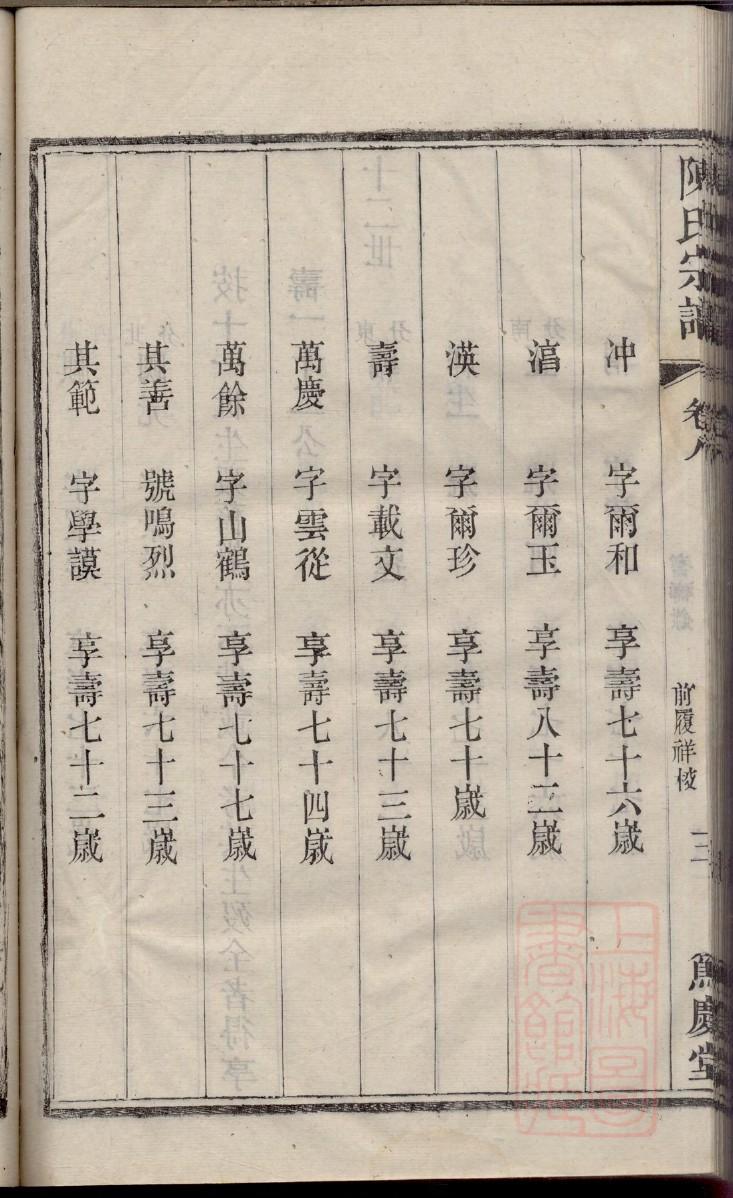 陳氏宗譜 卷八 前履祥校 三 篤慶堂
冲 字爾和 享壽七十六歲
湻 字爾玉 享壽八十二歲
渶 字爾珍 享壽七十歲
壽 字載文 享壽七十三歲
萬慶 字雲從 享壽七十四歲
萬餘 字山鶴 享壽七十七歲
其善 號鳴烈 享壽七十三歲
其範 字學謨 享壽七十二歲
上海圖書館藏